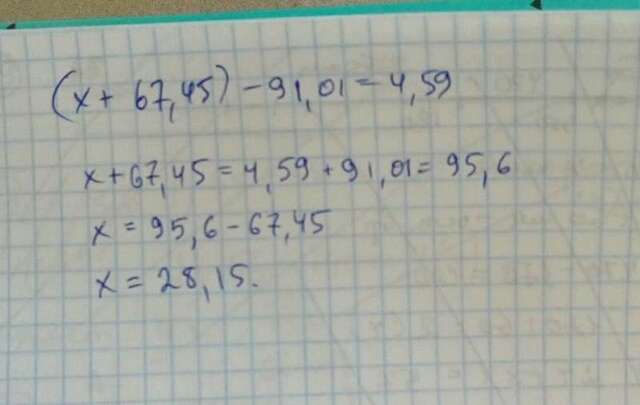 (x + 67,45) - 91,01 = 4,59
x + 67,45 = 4,59 + 91,01 = 95,6
x = 95,6 - 67,45
x = 28,15.